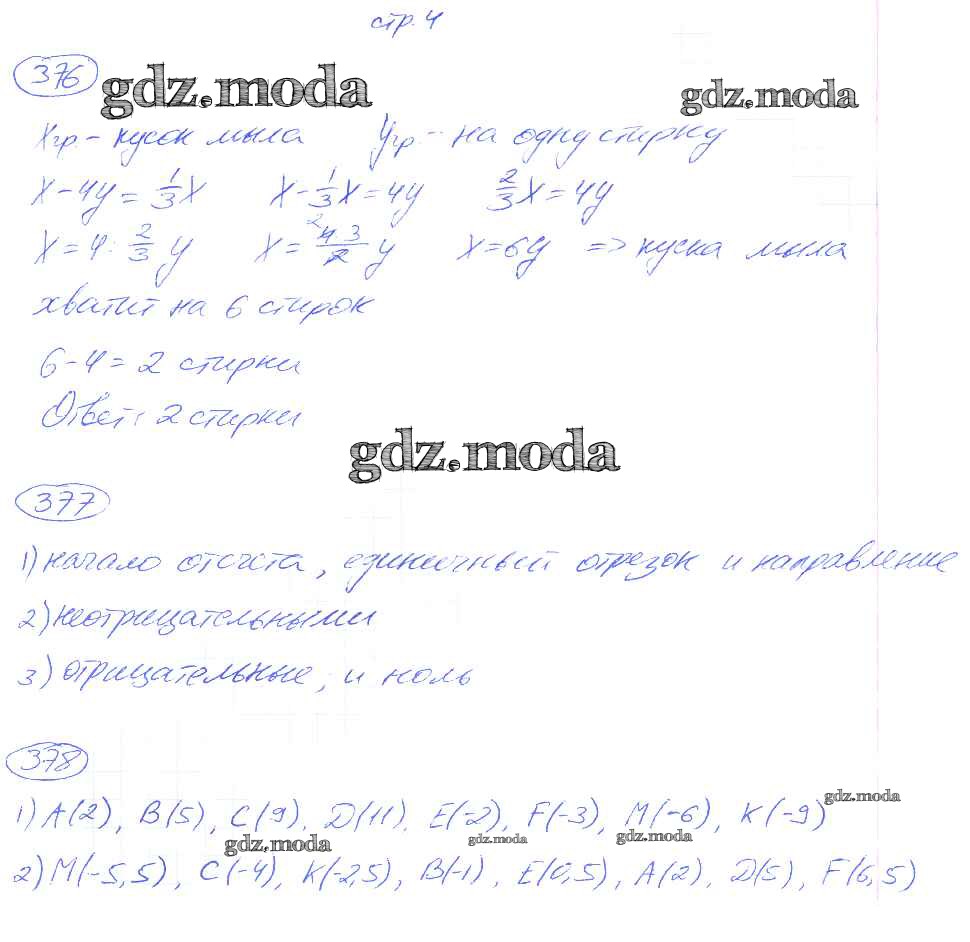 стр. 4
376
gdz.moda gdz.moda
Xгр. – кусок мыла Yгр. – на одну стирку
X – 4y = 1/3 X X – 1/3 X = 4y 2/3 X = 4y
X = 4 : 2/3 y X = 2 4·3/2 y X = 6y => куска мыла
хватит на 6 стирок
6 – 4 = 2 стирки
Ответ: 2 стирки
gdz.moda
377
1) начало отсчета, единичный отрезок и направление
2) неотрицательными
3) отрицательные, и ноль
378
1) A(2), B(5), C(9), D(11), E(-2), F(-3), M(-6), K(-9)
gdz.moda
gdz.moda gdz.moda gdz.moda
2) M(-5,5), C(-4), K(-2,5), B(-1), E(0,5), A(2), D(5), F(6,5)